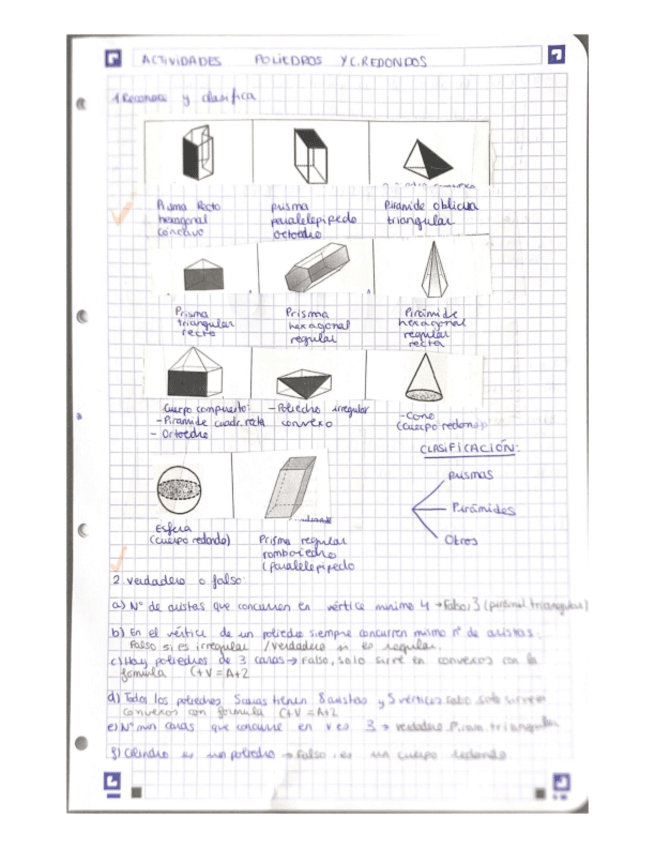 ACTIVIDADES POLIEDROS Y C.REDONDOS
1.Reconoce y clasifica
Prisma Recto hexagonal cóncavo
prisma paralelepípedo Ortoedro
Pirámide oblicua triangular
Prisma triangular recto
Prisma hexagonal regular
Pirámide hexagonal regular recta
Cuerpo compuesto:
- Pirámide cuadr. recta
- Ortoedro
- Poliedro irregular convexo
- Cono (Cuerpo redondo)
CLASIFICACIÓN:
Prismas
Pirámides
Otros
Esfera (cuerpo redondo)
Prisma regular romboiedro (paralelepipedo
2. verdadero o falso:
a) Nº de aristas que concurren en vértice mínimo 4 → Falso, 3 (pirámid. triangular)
b) En el vértice de un poliedro siempre concurren mismo nº de aristas.
Falso si es irregular / verdadero si es regular.
c) Hay poliedros de 3 caras → Falso, solo sirve en convexos con la
fórmula C+V = A+2
d) Todos los poliedros 5 caras tienen 8 aristas y 5 vértices. Falso solo sirve en
convexos con fórmula C+V = A+2
e) Nº min caras que concurre en v es 3 → verdadero. Piram. triangular
f) Cilindro es un poliedro → Falso, es un cuerpo redondo